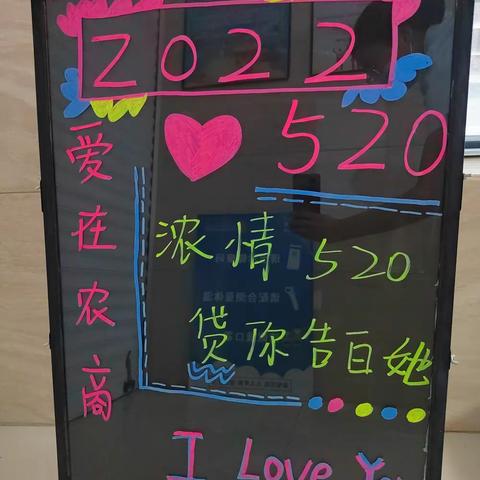 2022
520
爱在农商
浓情 520
贷你告白她
I Love You